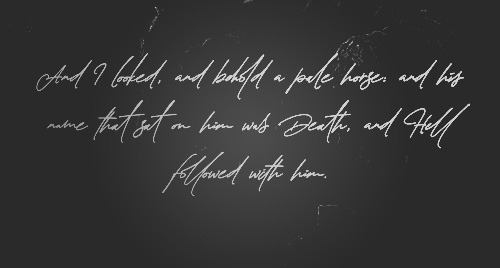 And I looked, and behold a pale horse: and his
name that sat on him was Death, and Hell
followed with him.